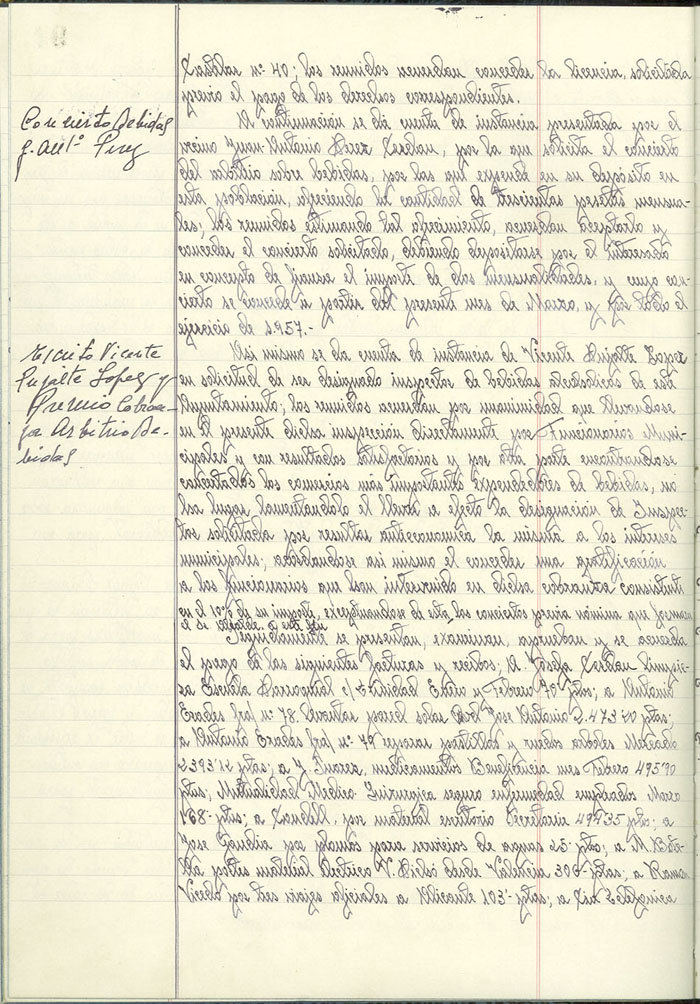 nº 40; los reunidos acuerdan conceder la licencia solicitada
previo el pago de los derechos correspondientes.
Concierto Bebidas
J. Antº Perez
A continuación se dá cuenta de instancia presentada por el
vecino Juan Antonio Perez Kerdan, por la que solicita el concierto
del arbitrio sobre bebidas, por las que expende en su depósito en
esta población, ofreciendo la cantidad de trescientas pesetas mensua-
les; los reunidos estimando tal ofrecimiento, acuerdan aceptarlo y
conceder el concierto solicitado, debiendo depositarse por el interesado
en concepto de fianza el importe de dos mensualidades, y cuyo con-
cierto se concede a partir del presente mes de Marzo, y por todo el
ejercicio de 1.957.-
Escrito Vicente
Pujalte Lopez y
Premio Cobran-
za Arbitrio Be-
bidas
Asi mismo se da cuenta de instancia de Vicente Pujalte Lopez
en solicitud de ser designado inspector de bebidas alcoholicas de este
Ayuntamiento; los reunidos acuerdan por unanimidad que llevandose
en el presente dicha inspección directamente por Funcionarios Muni-
cipales y con resultados satisfactorios y por otra parte encontrandose
concertados los comercios más importantes expendedores de bebidas, no
ha lugar lamentandolo el llevar a efecto la designación de Inspec-
tor solicitada por resultar antieconomica la misma a los intereses
municipales; acordandose asi mismo el conceder una gratificación
a los funcionarios que han intervenido en dicha cobranza consistente
en el 10% de su importe, exceptuandose de esta los conciertos previa nómina que formará
el Sr. Alcalde a este fin
Seguidamente se presentan, examinan, aprueban y se acuerda
el pago de las siguientes facturas y recibos; A Josefa Kerdan limpie-
za Escuela Parroquial c/ Trinidad Enero y Febrero 70 ptas; a Antonio
Erades fra/ nº 78 levantar pared solar Avd Jose Antonio 2.473'20 ptas;
a Antonio Erades fra/ nº 79 reparar portillos y ruedo arboles Mercado
2393'12 ptas; a J. Juarez, medicamentos Beneficencia mes Febrero 495'70
ptas; Mutualidad Médico Quirurgica seguro enfermedad empleados Marzo
168- ptas; a por material escritorio Secretaria 499'35 ptas; a
Jose Gandia por plomos para servicios de aguas 25- ptas; a M.
portes material electrico V. desde Valencia 306- ptas; a Ramon
Vicedo por tres viajes oficiales a Alicante 103'- ptas; a Cia Telefonica